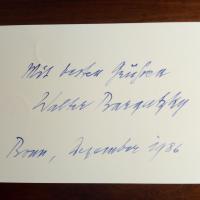 Mit besten Grüßen
Walter Bargatzky
Bonn, Dezember 1986